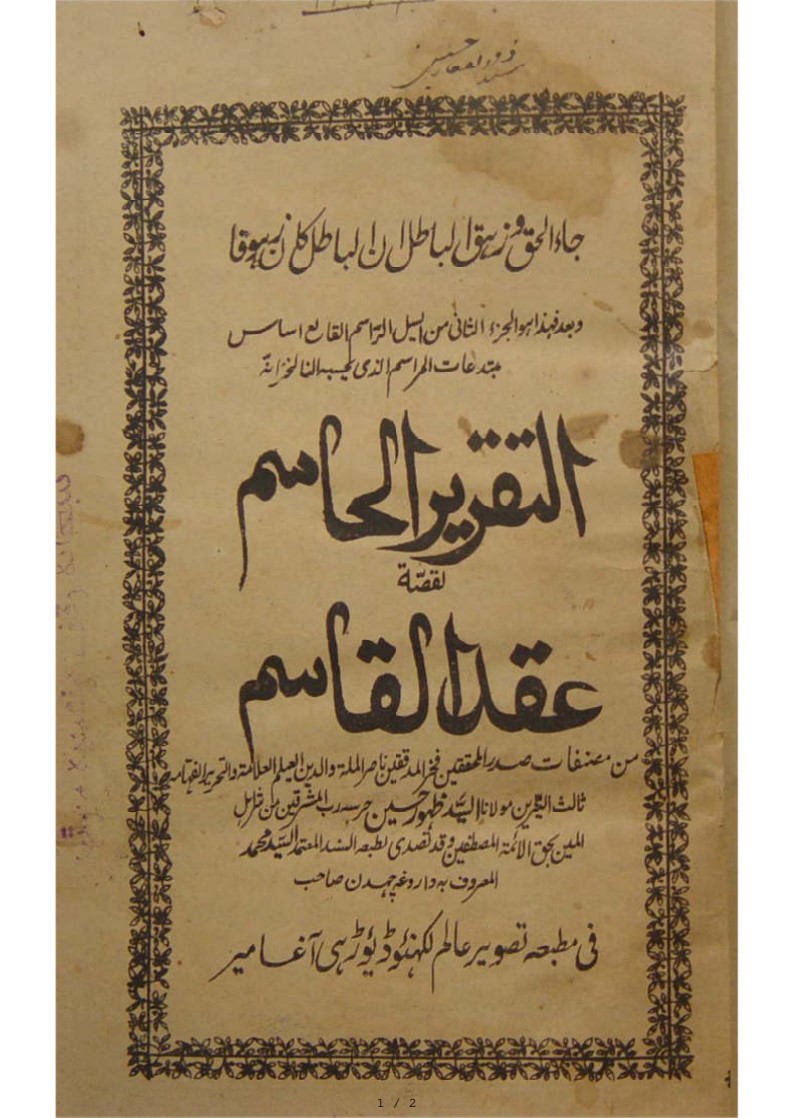 سید ذوالفقار حسین
جاء الحق و زہق الباطل ان الباطل کان زہوقا
وبعد فہذا ہو الجزء الثانی من السیل الراسم القالع اساس
مبتدعات المراسم الذی
التقریر الحاسم
لقصّة
عقد القاسم
من مصنفات صدر المحققین فخر المدققین ناصر الملة والدین العیلم العلامة والنحریر الفہامہ
ثالث النیّرین مولانا السیّد ظہور حسین حرسہ رب المشرقین من شر کل
المین بحق الائمة المصطفین وقد تصدی لطبعہ السند المعتمد السیّد محمد
المعروف بہ داروغہ چہدن صاحب
فی مطبعہ تصویر عالم لکھنئو ڈیئوڑہی آغا میر
1 / 2